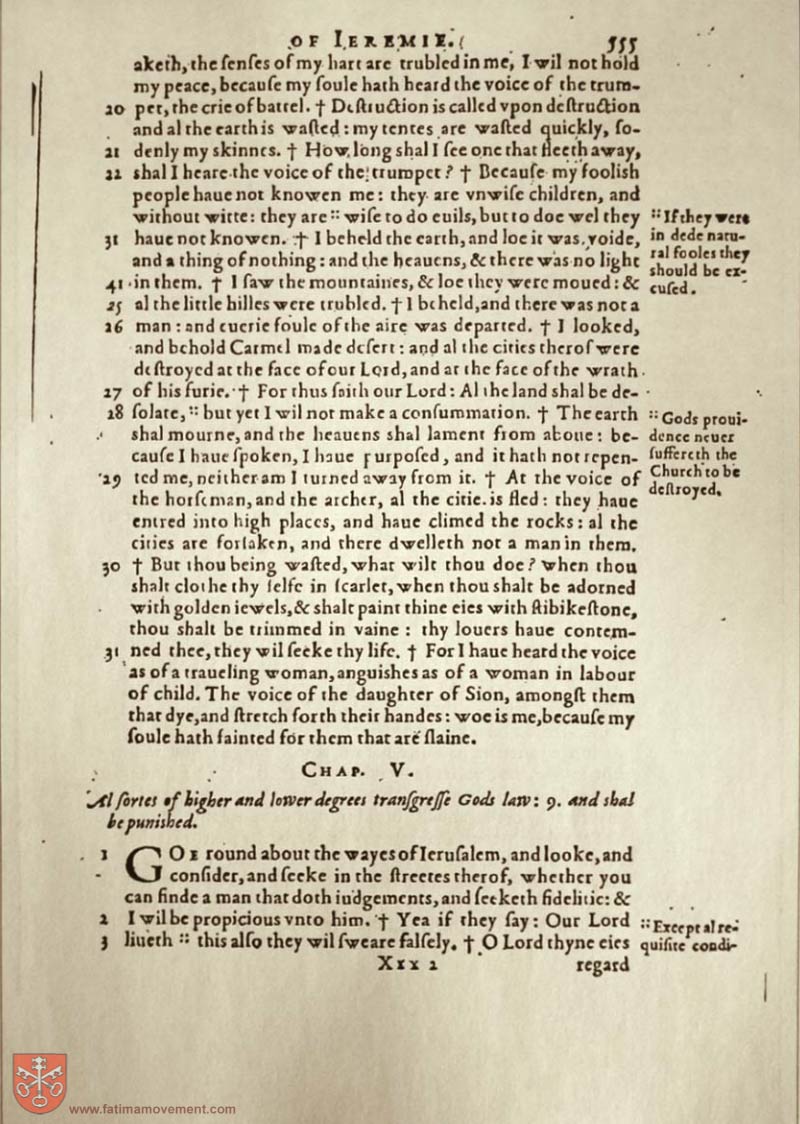 OF IEREMIE. 555
aketh, the ſenſes of my hart are trubled in me, I wil not hold
my peace, becauſe my ſoule hath heard the voice of the trum-
20 pet, the crie of battel. † Deſtruction is called vpon deſtruction
and al the earth is waſted: my tentes are waſted quickly, ſo-
21 denly my skinnes. † How long shal I ſee one that fleeth away,
22 shal I heare the voice of the trumpet? † Becauſe my foolish
people haue not knowen me: they are vnwiſe children, and
without witte: they are :: wiſe to do euils, but to doe wel they
31 haue not knowen. † I beheld the earth, and loe it was voide,
and a thing of nothing: and the heauens, & there was no light
41 in them. † I ſaw the mountaines, & loe they were moued: &
25 al the little hilles were trubled. † I beheld, and there was not a
26 man: and euerie foule of the aire was departed. † I looked,
and behold Carmel made deſert: and al the cities therof were
deſtroyed at the face of our Lord, and at the face of the wrath
27 of his furie. † For thus ſaith our Lord: Al the land shal be de-
28 ſolate, :: but yet I wil not make a conſummation. † The earth
shal mourne, and the heauens shal lament from aboue: be-
cauſe I haue ſpoken, I haue purpoſed, and it hath not repen-
29 ted me, neither am I turned away from it. † At the voice of
the horſeman, and the archer, al the citie is fled: they haue
entred into high places, and haue climed the rocks: al the
cities are forſaken, and there dwelleth not a man in them.
30 † But thou being waſted, what wilt thou doe? when thou
shalt clothe thy ſelfe in ſcarlet, when thou shalt be adorned
with golden iewels, & shalt paint thine eies with ſtibikeſtone,
thou shalt be trimmed in vaine: thy louers haue contem-
31 ned thee, they wil ſeeke thy life. † For I haue heard the voice
as of a traueling woman, anguishes as of a woman in labour
of child. The voice of the daughter of Sion, amongſt them
that dye, and ſtretch forth their handes: woe is me, becauſe my
ſoule hath fainted for them that are ſlaine.
:: If they were
in dede natu-
ral fooles they
should be ex-
cuſed.
:: Gods proui-
dence neuer
ſuffereth the
Church to be
deſtroyed.
CHAP. V.
Al ſortes of higher and lower degrees tranſgreſſe Gods law: 9. and shal
be punished.
1 GOE round about the wayes of Ieruſalem, and looke, and
conſider, and ſeeke in the ſtreetes therof, whether you
can finde a man that doth iudgements, and ſeeketh fidelitie: &
2 I wil be propicious vnto him. † Yea if they ſay: Our Lord
3 liueth :: this alſo they wil ſweare falſely. † O Lord thyne eies
:: Except al re-
quiſite condi-
Xxx 2 regard
www.fatimamovement.com